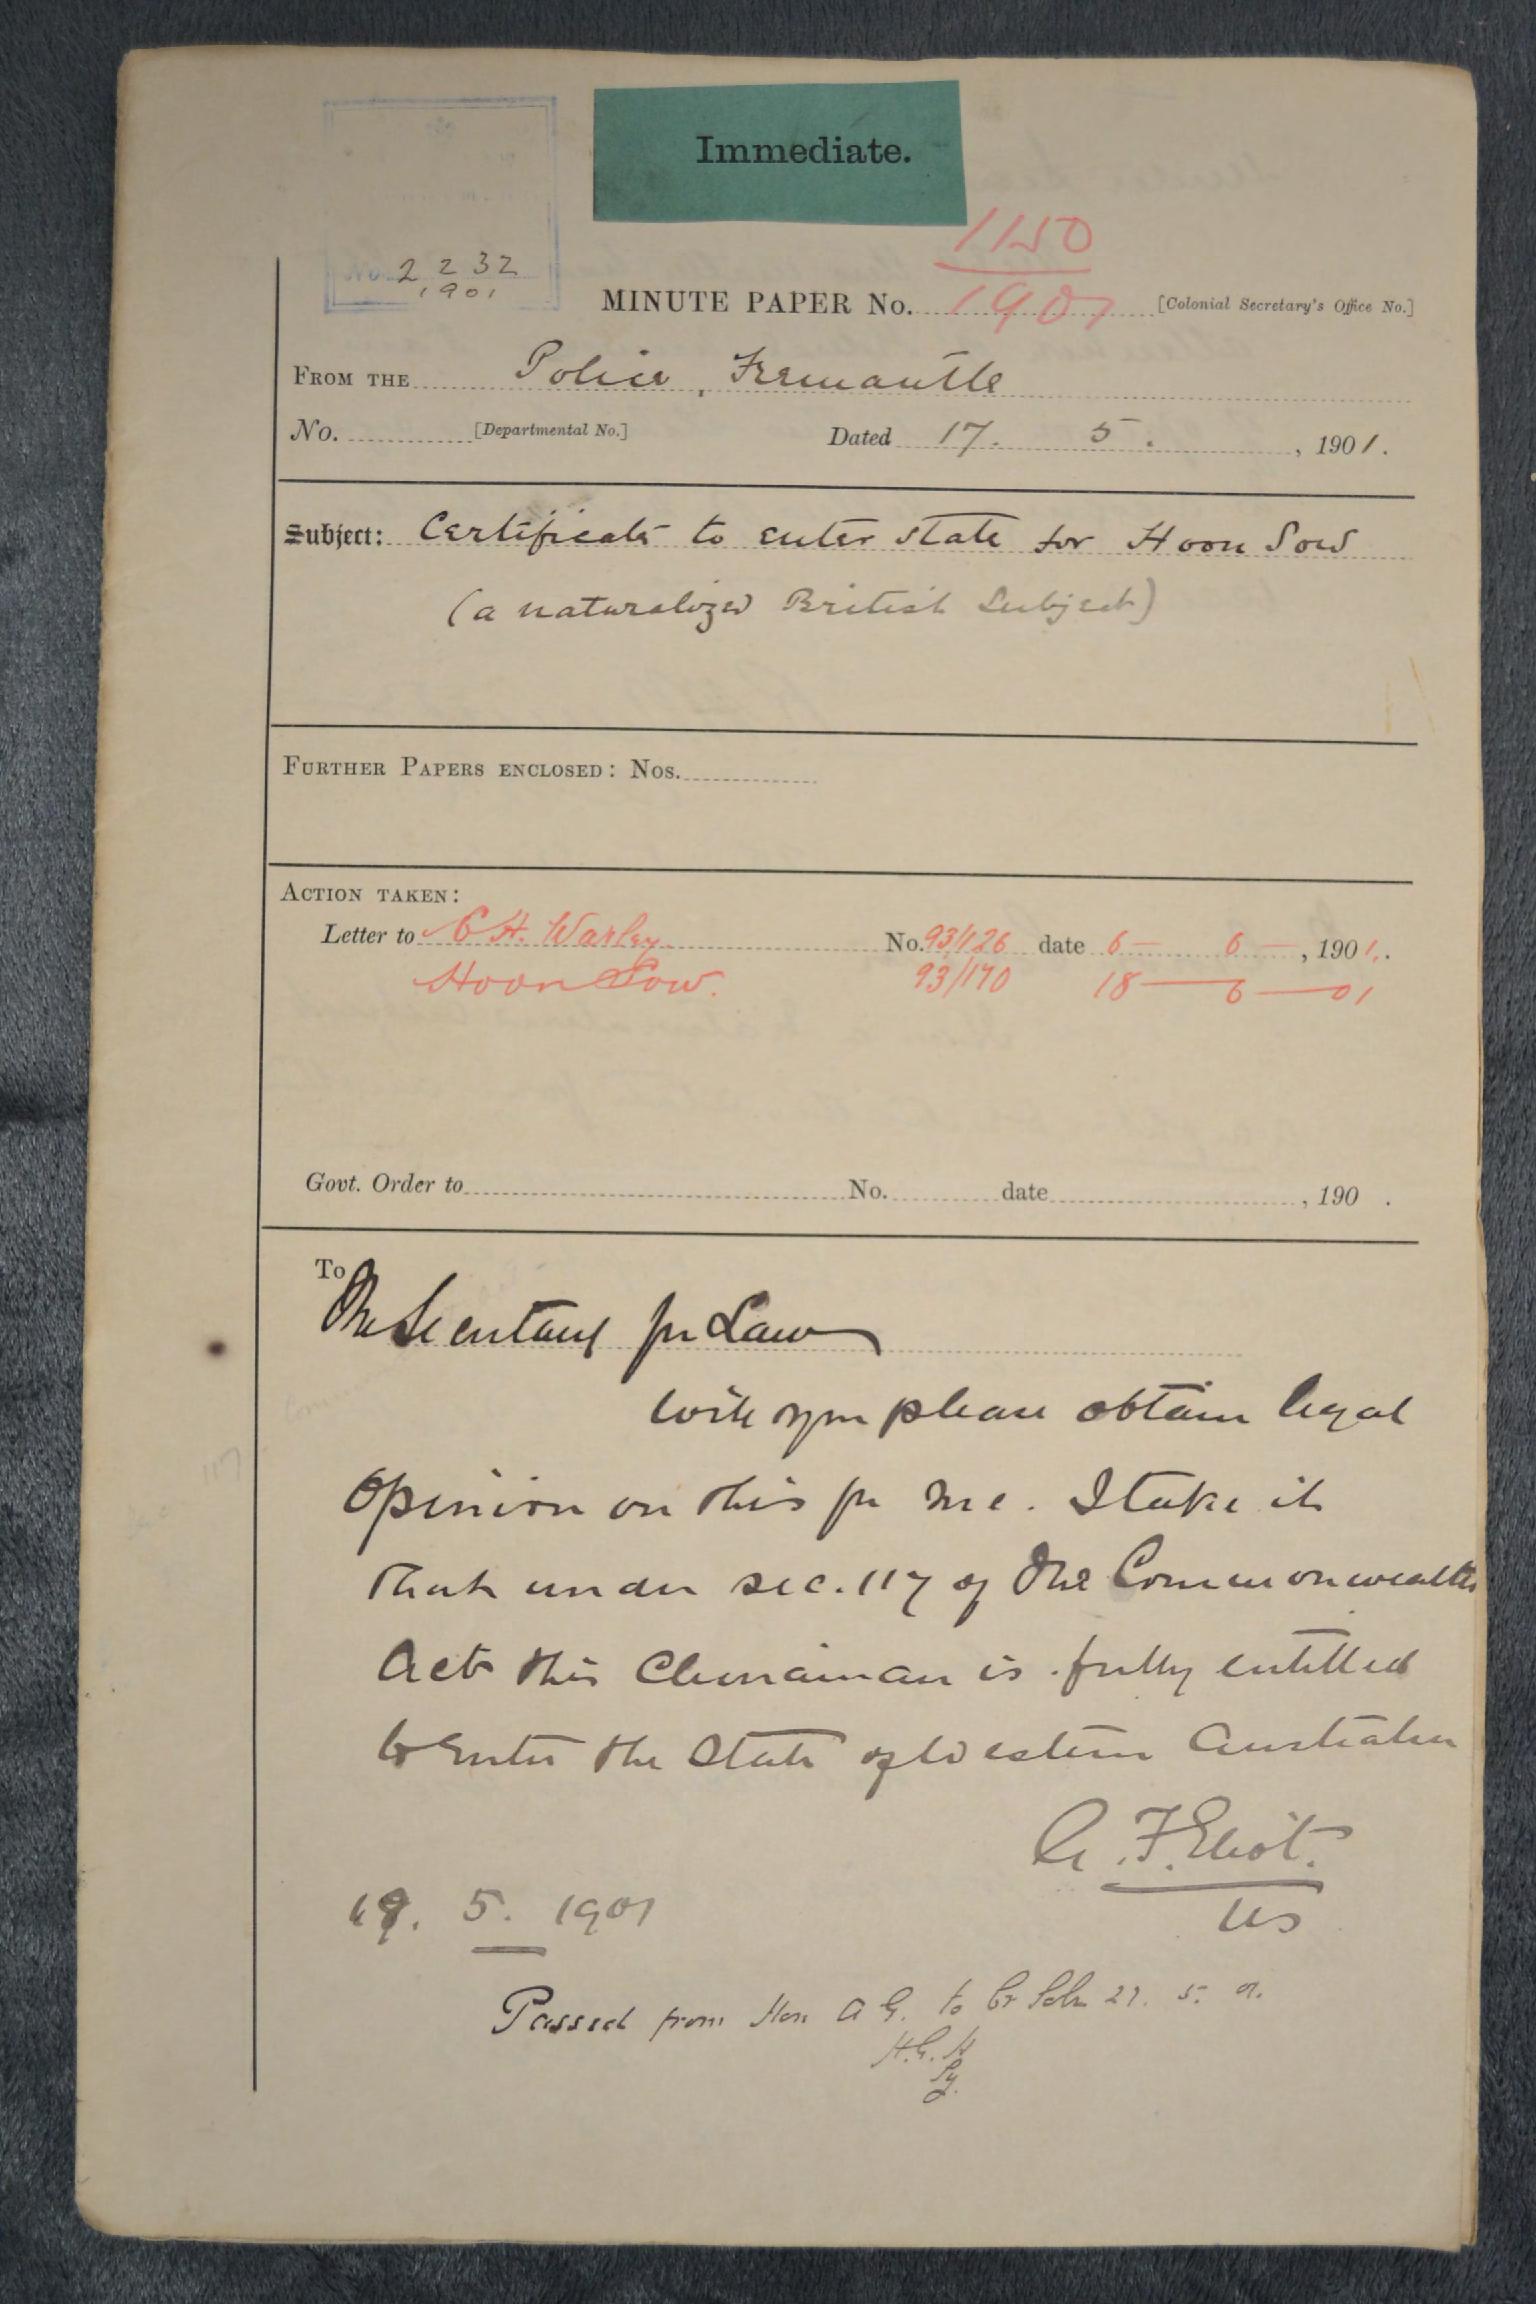 Immediate.
No. 2232
1901
1150
MINUTE PAPER No. 1901 [Colonial Secretary's Office No.]
FROM THE Police, Fremantle
No. [Departmental No.] Dated 17. 5. , 1901.
Subject: Certificate to enter state for Hoon Sow
(a naturalized British Subject)
FURTHER PAPERS ENCLOSED: Nos.
ACTION TAKEN:
Letter to C H. Warley No. 93/126 date 6 — 6 — , 1901.
Hoon Sow. 93/170 18 — 6 — 01
Govt. Order to No. date , 190 .
To
The Secretary for Law
Will you please obtain legal
opinion on this for me. I take it
that under sec. 117 of the Commonwealth
Act this Chinaman is fully entitled
to enter the State of Western Australia
G. F. Eliot.
US
19. 5. 1901
Passed from Hon A G. to Cr Solr 5. 01.
H.G.H
Sy.
117